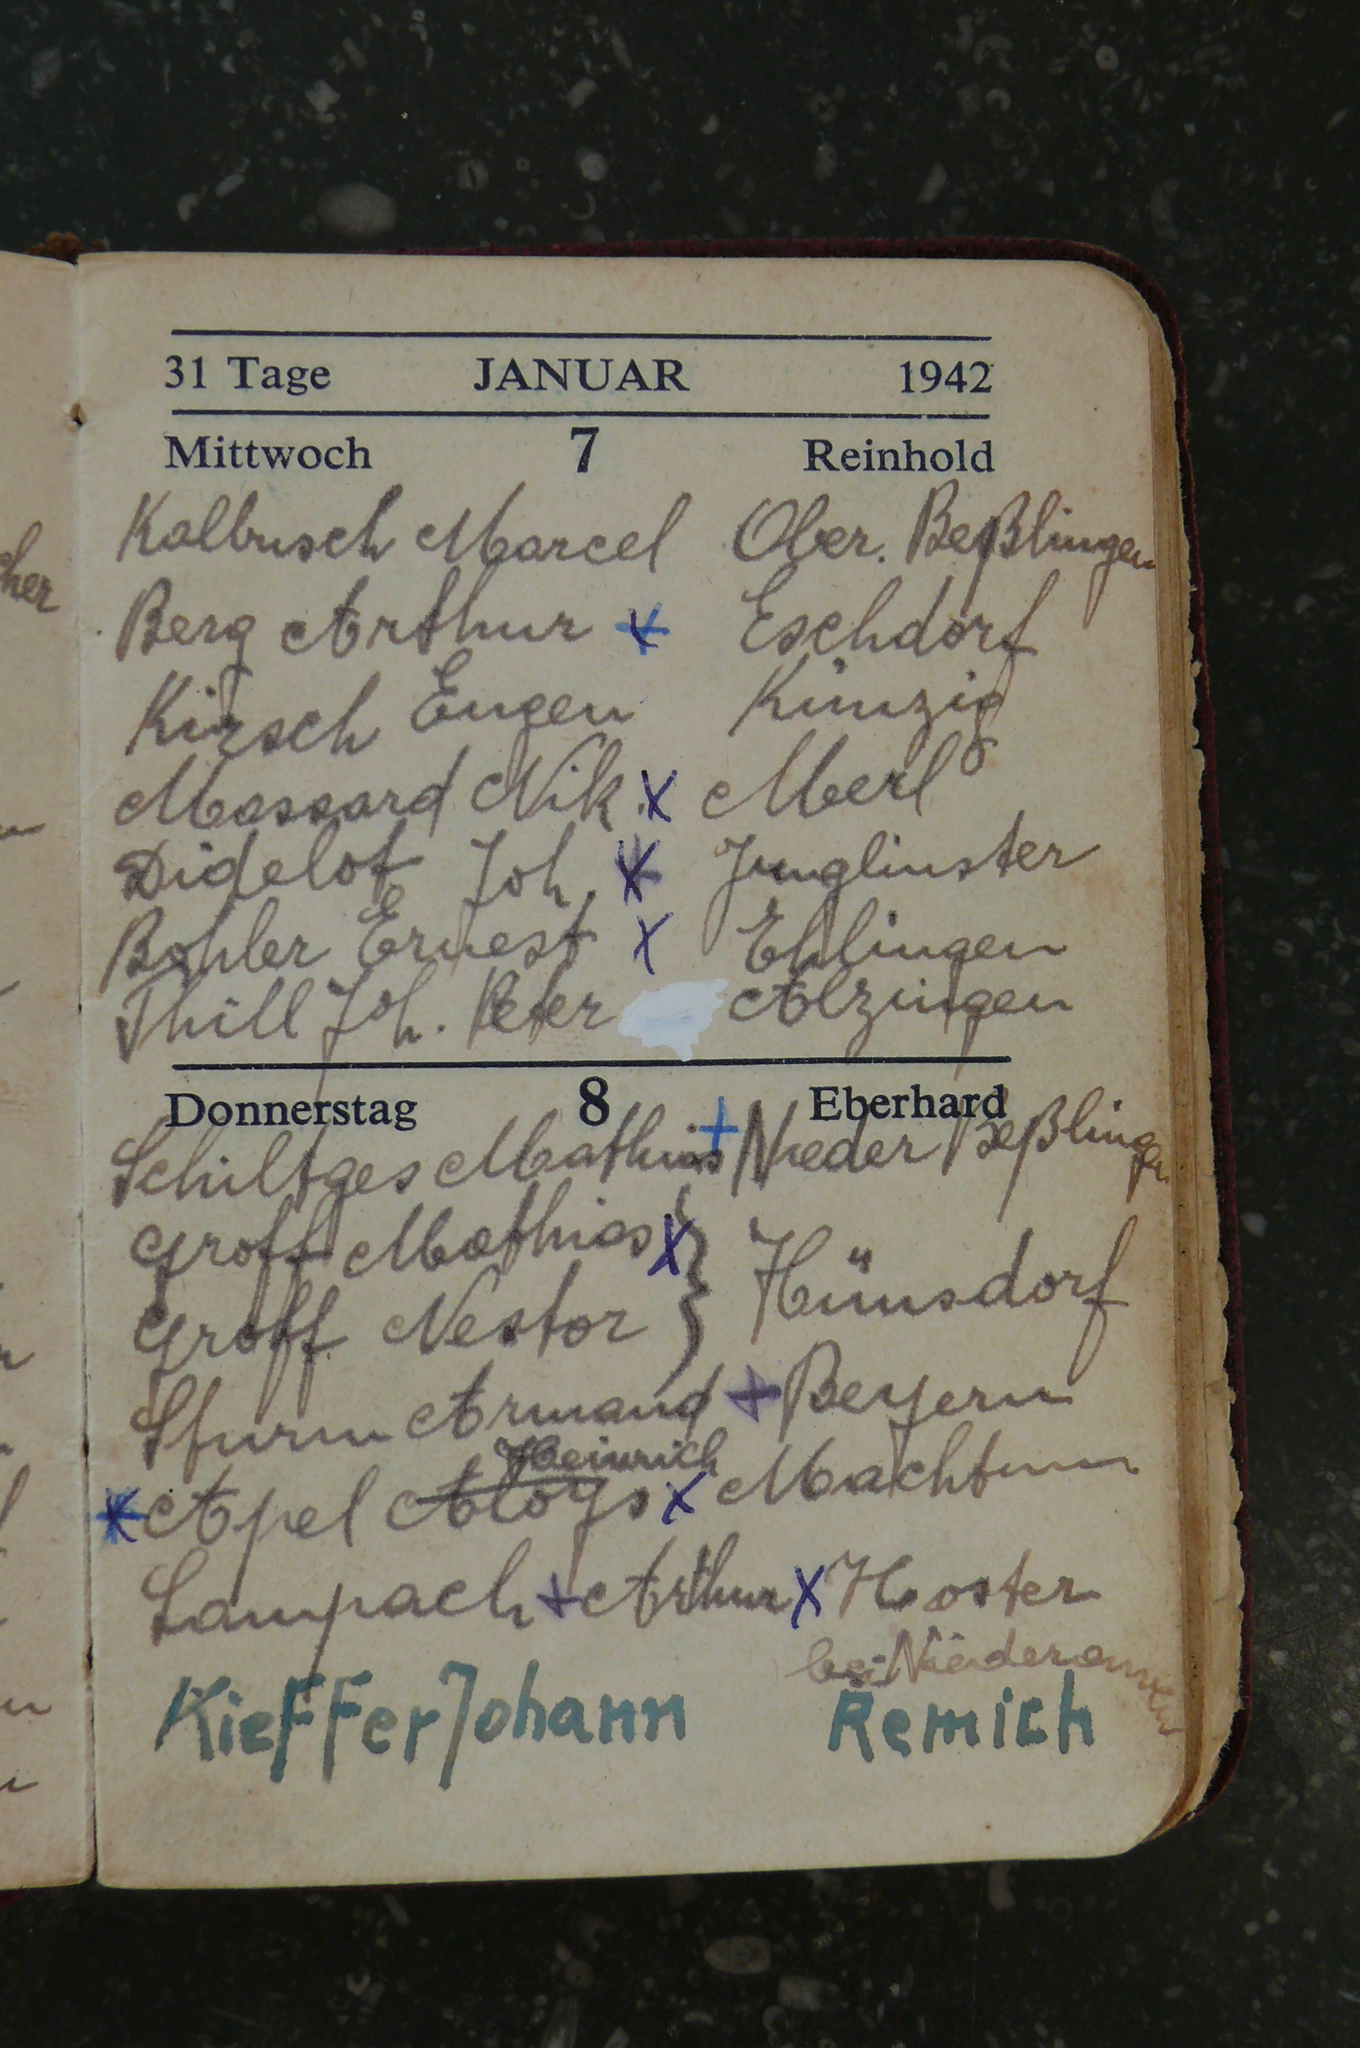 31 Tage JANUAR 1942
Mittwoch 7 Reinhold
cher
Kalbusch Marcel Ober. Beßlingen
Berg Arthur x Eschdorf
Kirsch Eugen Künzig
Massard Nik. x Merl
Didelot Joh. x Junglinster
Bohler Ernest x Ehlingen
Thill Joh. Peter Alzingen
Donnerstag 8 Eberhard
Schiltges Mathias + Nieder Beßlingen
Groff Mathias x } Hünsdorf
Groff Nestor
Sturm Armand + Beyern
Heinrich
x Apel Aloys x Machtum
Lampach + Arthur x Hoster
bei Niederanven
Kieffer Johann Remich